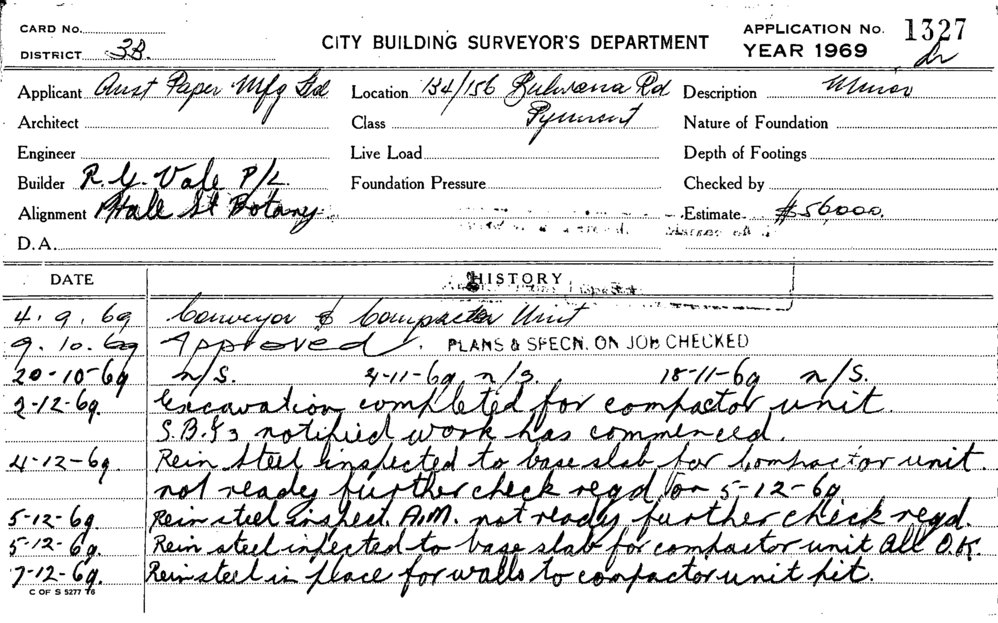 CARD No.
DISTRICT 3B.
CITY BUILDING SURVEYOR'S DEPARTMENT
APPLICATION No. 1327
YEAR 1969
Applicant Aust Paper Mfg Ltd Location 134/156 Bulwara Rd Description Minor
Architect Class Pyrmont Nature of Foundation
Engineer Live Load Depth of Footings
Builder R. G. Vale P/L. Foundation Pressure Checked by
Alignment Hale St Botany Estimate $56000.
D.A.
DATE HISTORY
4.9.69 Conveyor & Compactor Unit
9.10.69 Approved. PLANS & SPECN. ON JOB CHECKED
20-10-69 n/S. 4-11-69 n/S. 18-11-69 n/S.
2-12-69. Excavation completed for compactor unit.
S.B.&3 notified work has commenced.
4-12-69. Rein steel inspected to base slab for compactor unit.
not ready further check reqd on 5-12-69
5-12-69. Rein steel inspect. A.M. not ready further check reqd.
5-12-69. Rein steel infected to base slab for compactor unit all O.K.
7-12-69. Rein steel in place for walls to compactor unit pit.
C OF S 5277 76